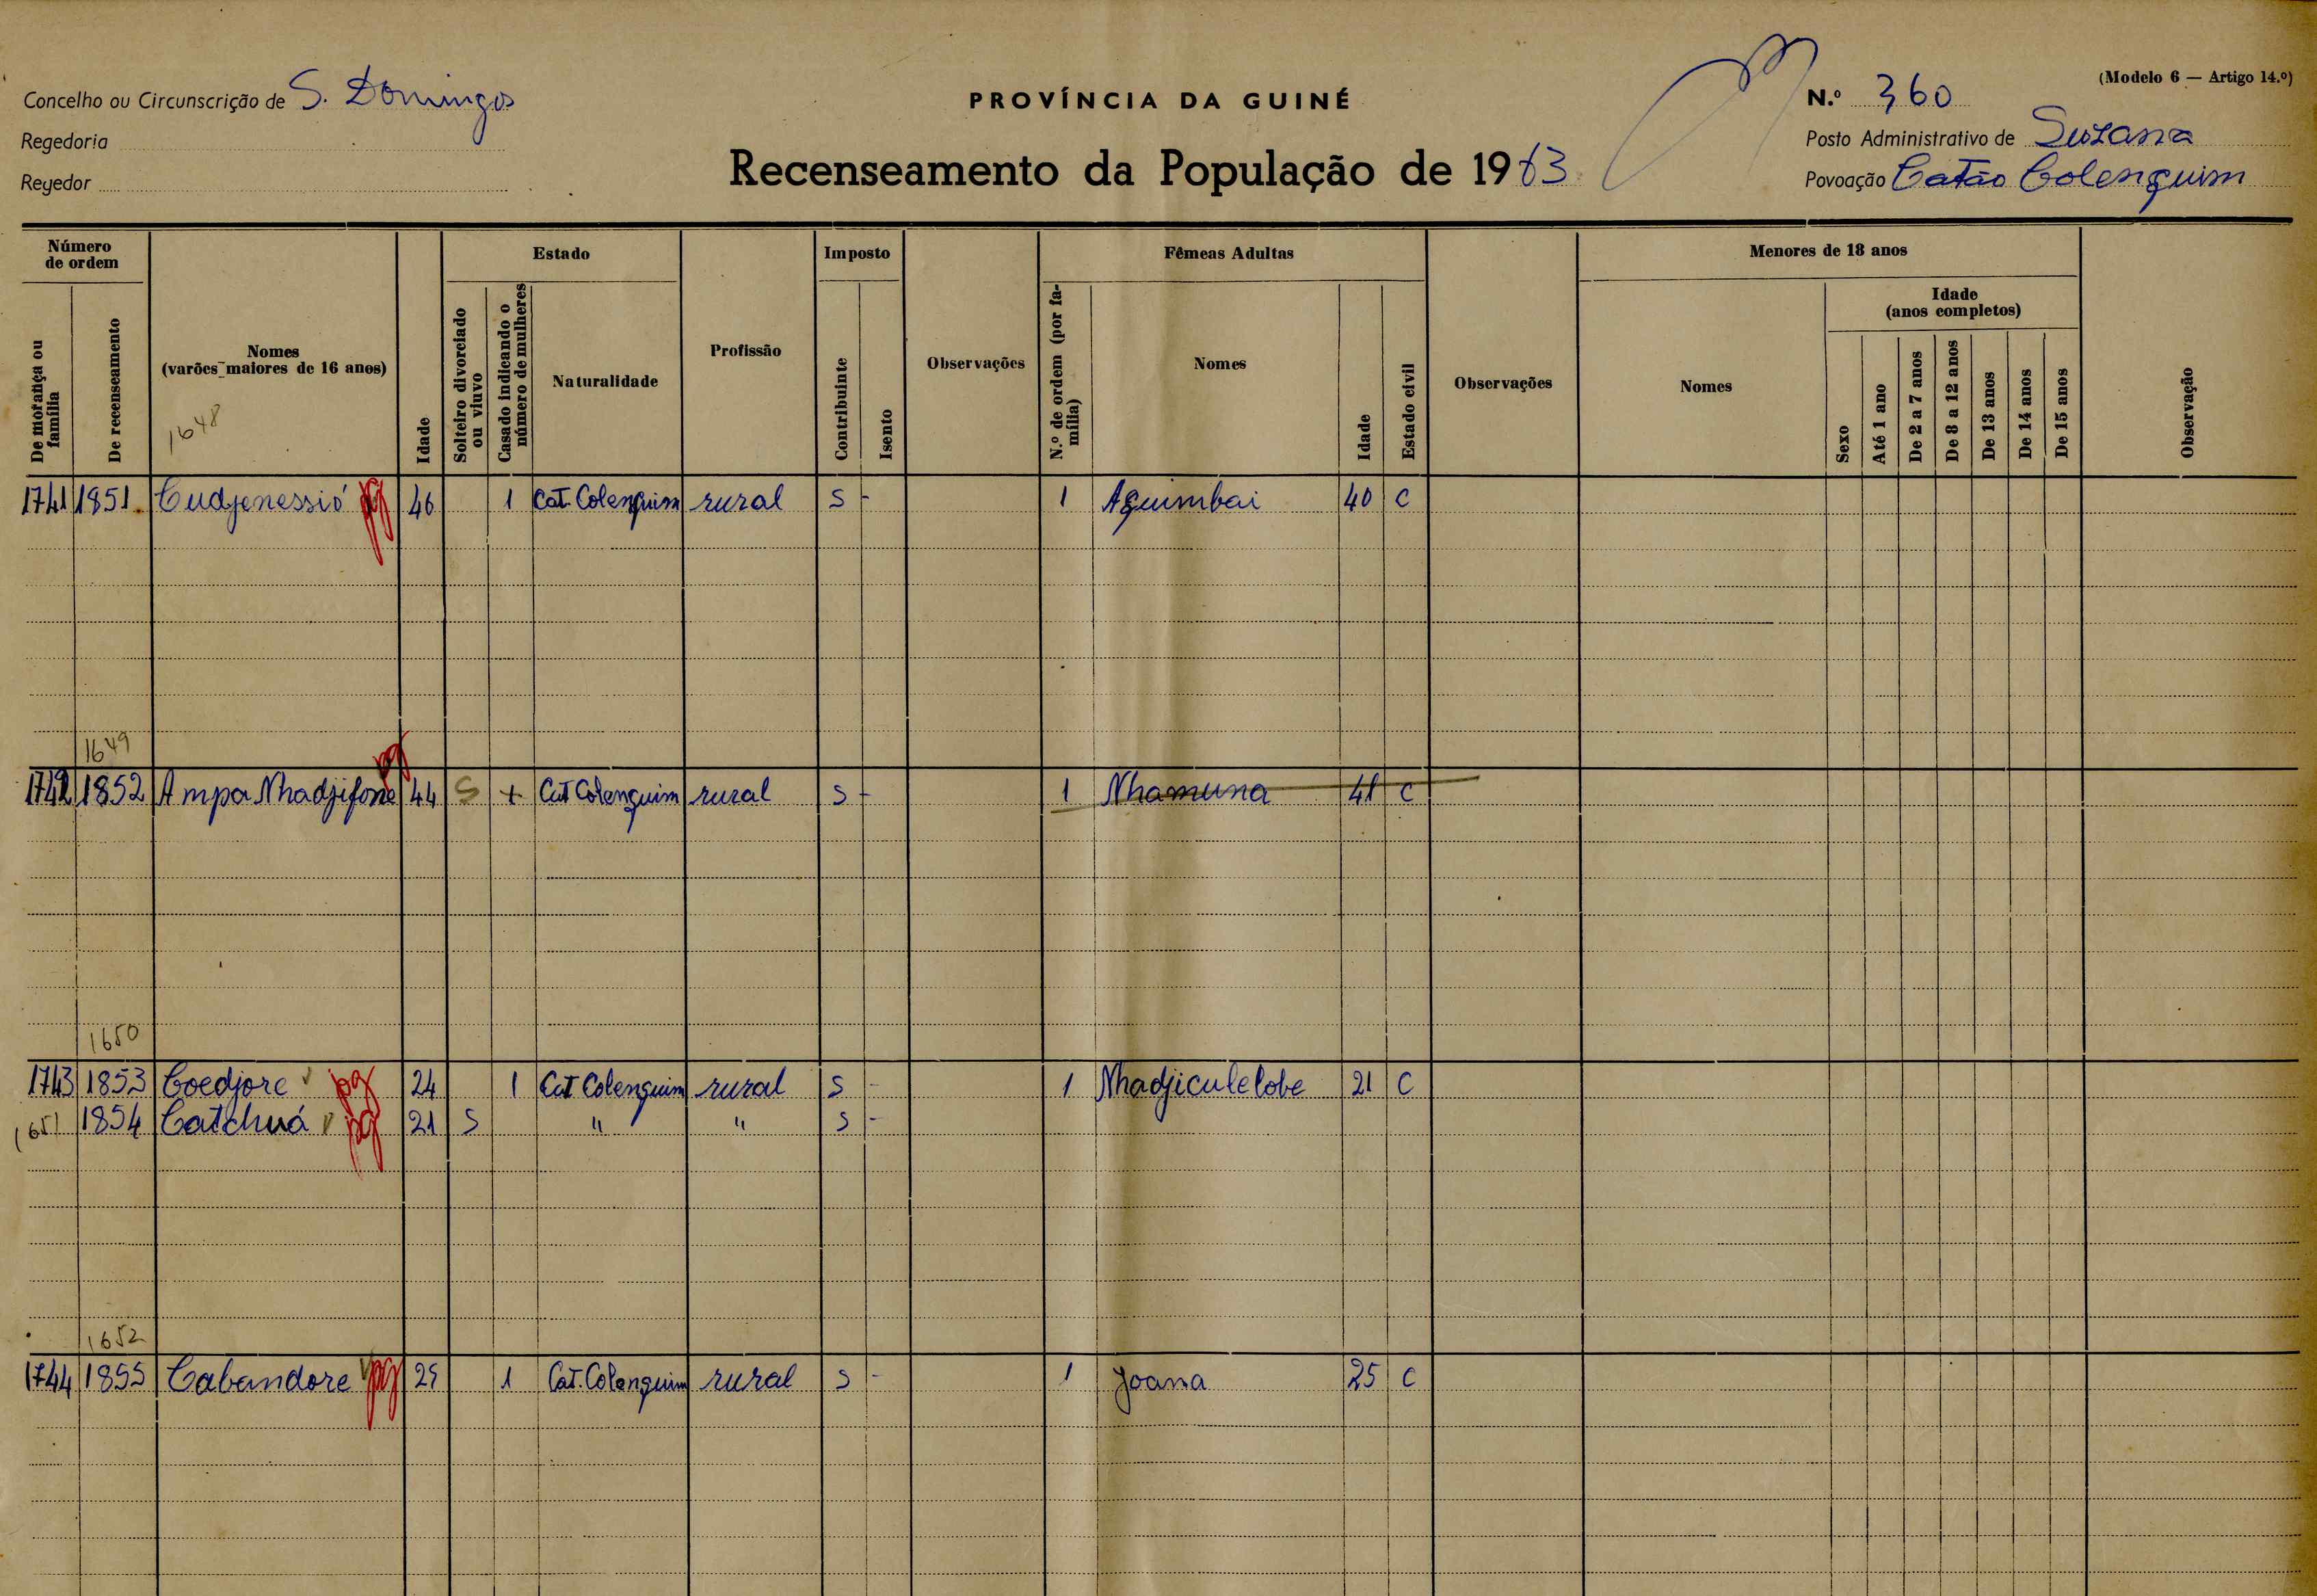 (Modelo 6 — Artigo 14.º)
Concelho ou Circunscrição de S. Domingos
PROVÍNCIA DA GUINÉ
N.º 360
Regedoria
Posto Administrativo de Suzana
Regedor
Recenseamento da População de 1963
Povoação Catão Colenquim
Número de ordem
De morança ou família
De recenseamento
Nomes (varões maiores de 16 anos)
1648
Idade
Estado
Solteiro divorciado ou viuvo
Casado indicando o número de mulheres
Naturalidade
Profissão
Imposto
Contribuinte
Isento
Observações
Fêmeas Adultas
N.º de ordem (por família)
Nomes
Idade
Estado civil
Observações
Menores de 18 anos
Nomes
Idade (anos completos)
Sexo
Até 1 ano
De 2 a 7 anos
De 8 a 12 anos
De 13 anos
De 14 anos
De 15 anos
Observação
1741 1851 Cudjenessió pg 46 1 Cat. Colenquim rural S - 1 Aquimbai 40 C
1649
1742 1852 Ampa Nhadjifone pg 44 S 1 Cat Colenquim rural S - 1 Nhamuna 41 C
1650
1743 1853 Coedjore pg 24 1 Cat Colenquim rural S - 1 Nhadjiculelobe 21 C
1651 1854 Catchuá pg 21 S " " S -
1652
1744 1855 Cabandore pg 25 1 Cat. Colenquim rural S - 1 Joana 25 C